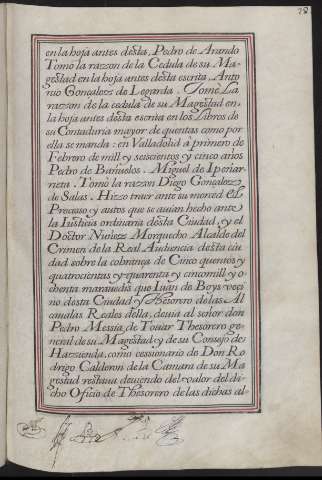 78
en la hoja antes desta, Pedro de Arando
Tomo la razzon de la Cedula de su Ma-
gestad en la hoja antes desta escrita, Anto
nio Gonçalezz de Legarda. Tome La
razzon de la cedula de su Magestad en-
la hoja antes desta escrita en los Libros de
su Contaduria mayor de quentas como por
ella se manda: en Valladolid a primero de
Febrero de mill y seiscientos y cinco años
Pedro de Bañuelos. Miguel de Ipeñar-
rieta. Tomo la razon Diogo Gonçalezz
de Salas. Hizo traer ante su merced el
Processo y autos que se auian hecho ante
la Iusticia ordinaria desta Ciudad, y el
Doctor Nuñezz Morquecho Alcalde del
Crimen de la Real Audiencia desta ciu
dad sobre la cobrança de Cinco quentos y
quatrocientas y quarenta y cinco mill y o-
chenta marauedis que Iuan de Boys veci
no desta Ciudad y Thesorero de las Al
caualas Reales della, deuia al señor don
Pedro Messia de Touar Thesorero ge-
neral de su Magestad y de su Consejo de
Hazzienda, como cessionario de Don Ro
drigo Calderon de la Camara de su Ma
gestad restaua deuiendo del valor del di-
cho Oficio de Thesorero de las dichas al-